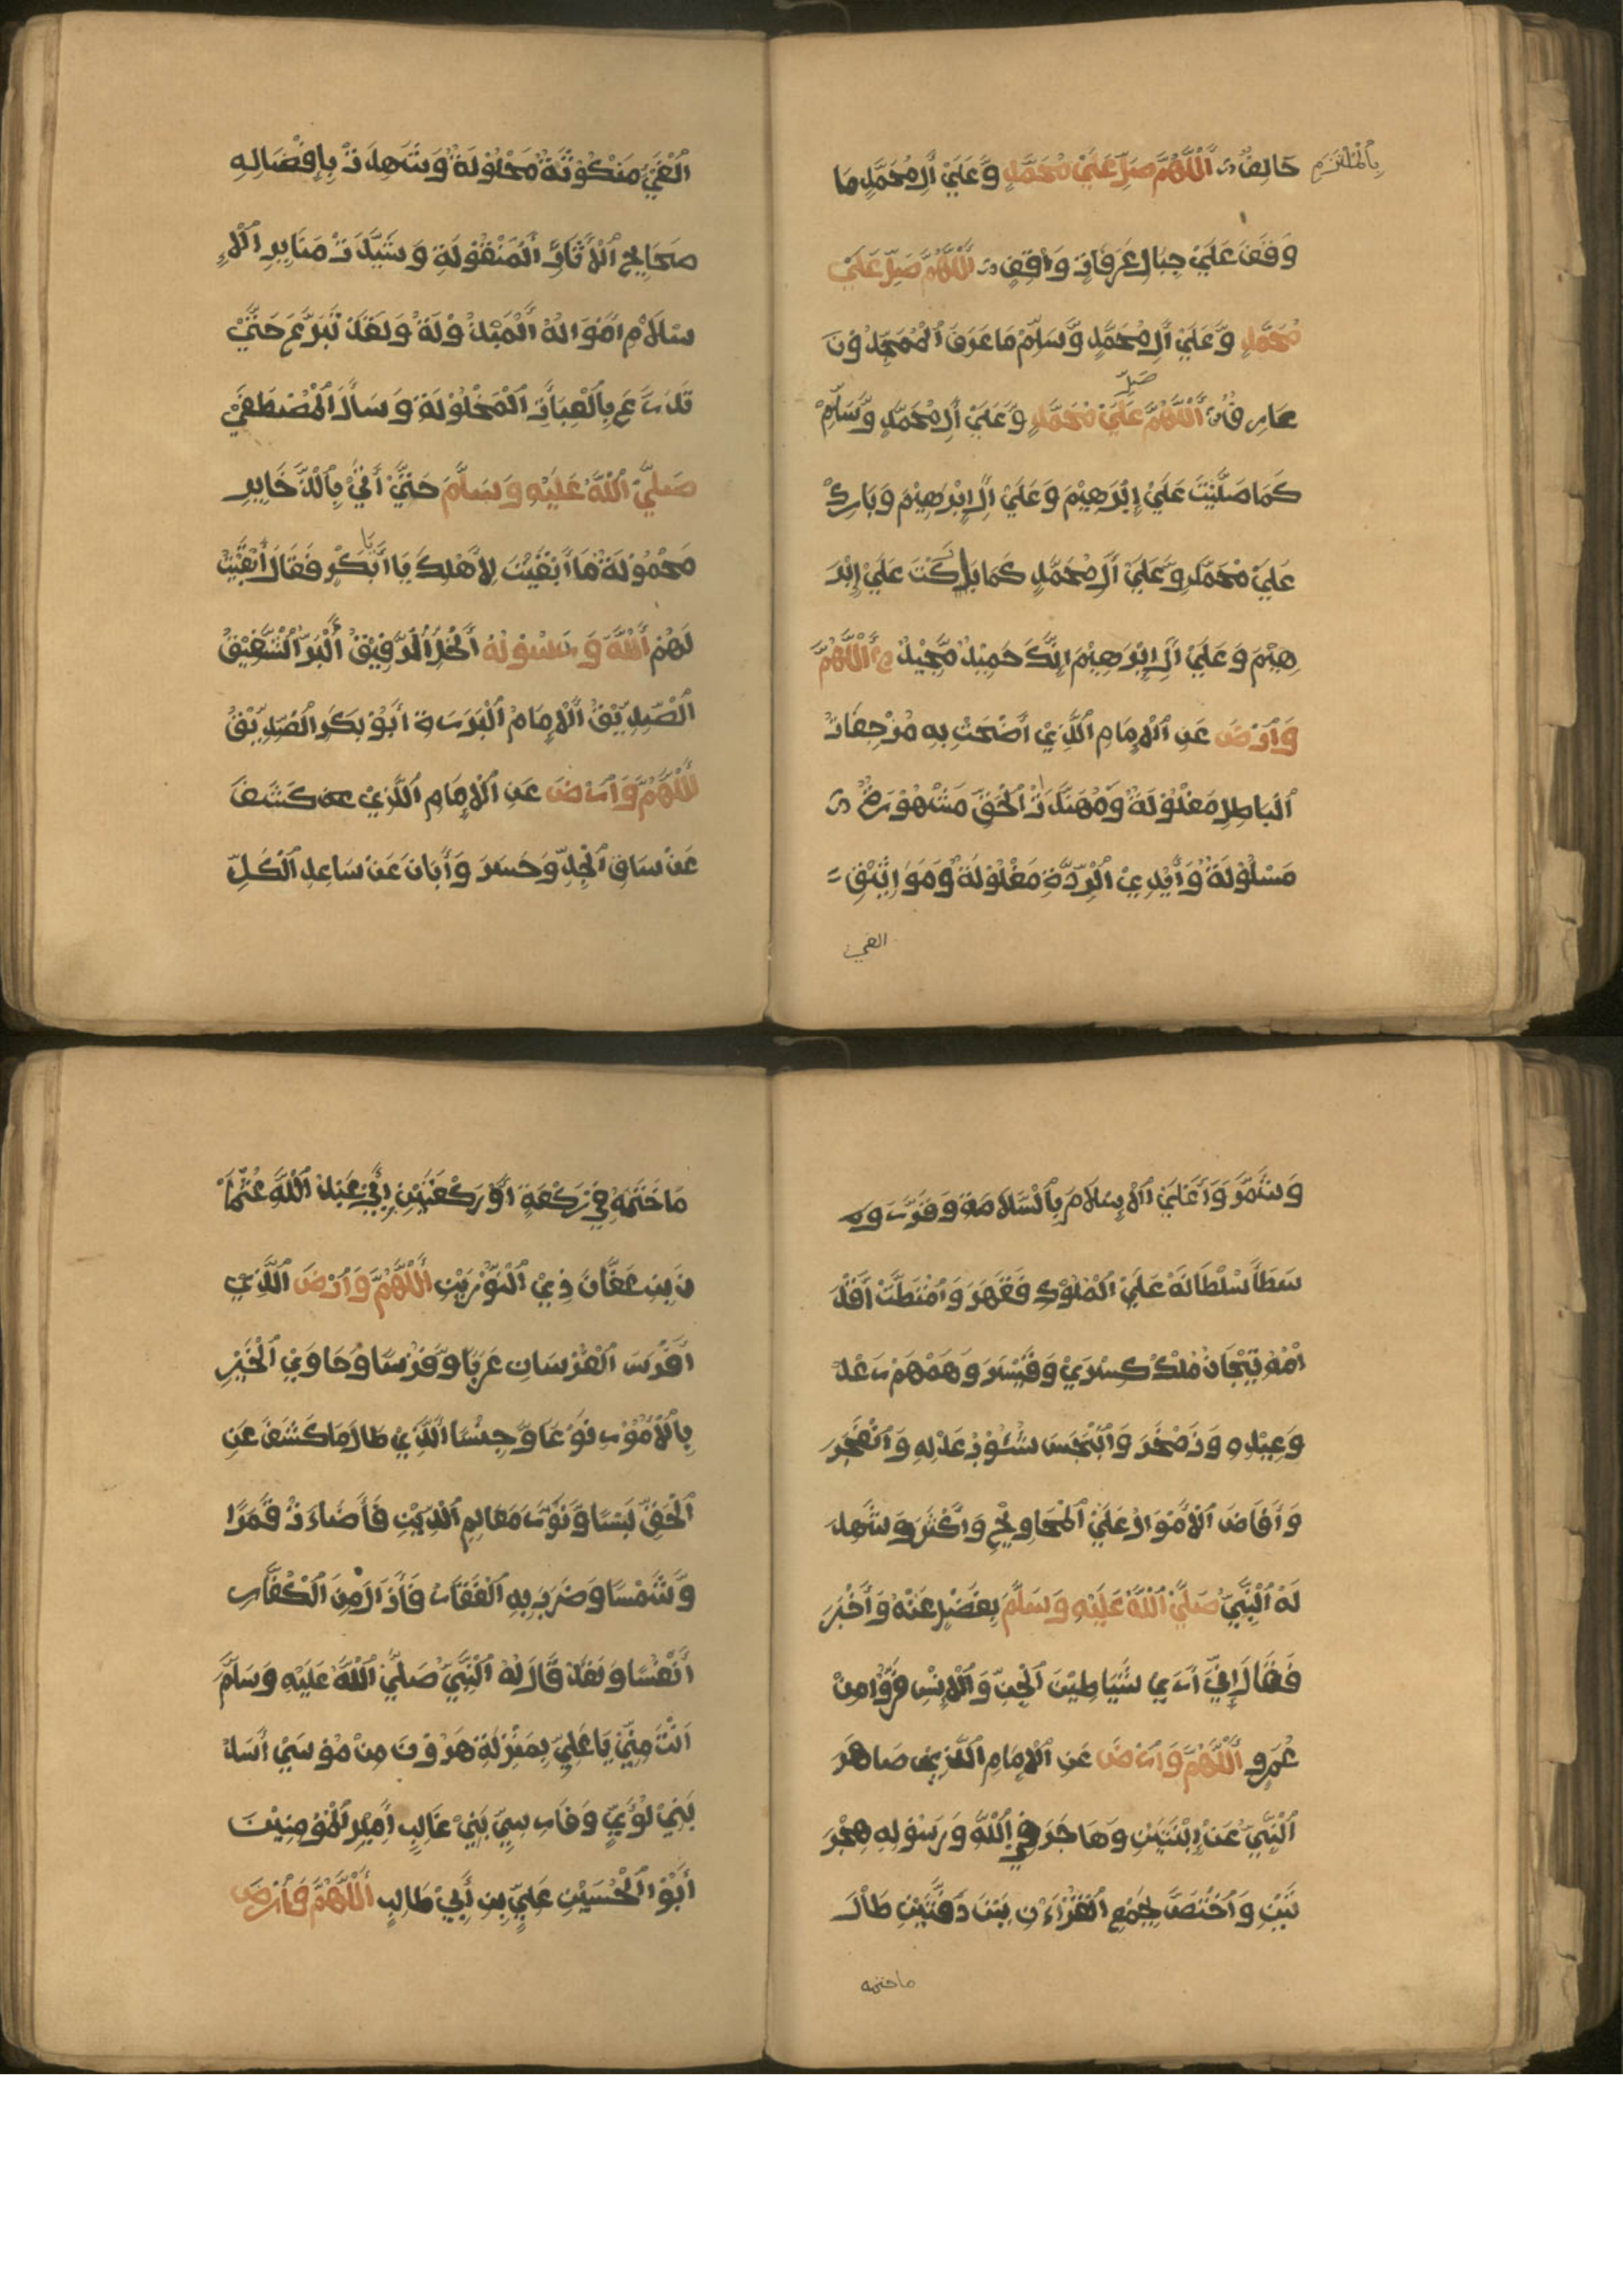 بِالْمُلْتَزِمِ
حَالِفٌ اَللَّهُمَّ صَلِّ عَلَيْ مُحَمَّدٍ وَّعَلَيْ أَلِ مُحَمَّدٍ مَا
وَقَفَ عَلَيْ جِبَالِ عَرَفَاتٍ وَاقِفٍ اَللَّهُمَّ صَلِّ عَلَيْ
مُحَمَّدٍ وَّعَلَيْ أَلِ مُحَمَّدٍ وَّسَلِّمْ مَا عَرَفَ الْمُمَجِّدُوْنَ
عَارِفٌ اَللَّهُمَّ صَلِّ عَلَيْ مُحَمَّدٍ وَّعَلَيْ أَلِ مُحَمَّدٍ وَّسَلِّمْ
كَمَا صَلَّيْتَ عَلَيْ إِبْرَهِيْمَ وَعَلَيْ أَلِ إِبْرَهِيْمَ وَبَارِكْ
عَلَيْ مُحَمَّدٍ وَّعَلَيْ أَلِ مُحَمَّدٍ كَمَا بَارَكْتَ عَلَيْ إِبْرَ
هِيْمَ وَعَلَيْ أَلِ إِبْرَهِيْمَ إِنَّكَ حَمِيْدٌ مَّجِيْدٌ اَللَّهُمَّ
وَارْضَ عَنِ الْإِمَامِ الَّذِيْ أَضْحَتْ بِهِ مُزْجِفَاتُ
الْبَاطِلِ مَغْلُوْلَةٌ وَمُهَنَّدَاتُ الْحَقِّ مَشْهُوْرَةٌ
مَسْلُوْلَةٌ وَأَيْدِيْ الرِّدَّةِ مَغْلُوْلَةٌ وَمَوَاثِيْقِ
الغي
الْغَيِّ مَنْكُوْثَةٌ مَحْلُوْلَةٌ وَشَهِدَتْ بِإِفْضَالِهِ
صَحَايِحُ الْأَثَارِ الْمَنْقُوْلَةِ وَشَيَّدَتْ مَنَابِرِ الْاِ
سْلَامِ أَمْوَالُهُ الْمَبْذُوْلَةُ وَلَقَدْ تَبَرَّعَ حَتَّيْ
تَدَرَّعَ بِالْعِبَاَتِ الْمَخْلُوْلَةِ وَسَأَلَ الْمُصْطَفَيْ
صَلَّيْ اللَّهُ عَلَيْهِ وَسَلَّمَ حَتَّيْ أَتَيْ بِالذَّخَايِرِ
مَحْمُوْلَةً مَا أَبْقَيْتَ لِأَهْلِكَ يَا أَبَابَكْرٍ فَقَالَ أَبْقَيْتُ
لَهُمْ اللَّهَ وَرَسُوْلَهُ الْخِلُّ الرَّفِيْقُ الْبَرُّ الشَّفِيْقُ
الصِّدِيِّقُ الْإِمَامُ الْبَرَرَةِ أَبُوْ بَكَرِ الصِّدِيِّقُ
اَللَّهُمَّ وَارْضَ عَنِ الْإِمَامِ الَّذِيْ كَشَفَ
عَنْ سَاقِ الْجِدِّ وَحَسَرَ وَأَبَانَ عَنْ سَاعِدِ الْكَلِّ
وَشَمَّرَ وَأَعْلَيْ الْإِسْلَامَ بِالسَّلَامَةِ وَقَرَّرَ
سَطَا سُلْطَانُهُ عَلَيْ الْمُلُوْكِ فَقَهَرَ وَامْتَطَتْ أَقْدَ
امُهُ تِيْجَانَ مُلْكِ كِسْرَيْ وَقَيْسَرَ وَهَمْهَمَ رَعْدُ
وَعِيْدِهِ وَزَمْخَرَ وَانْبَجَسَ شُئُوْبُ عَدْلِهِ وَانْفَجَرَ
وَأَفَاضَ الْأَمْوَالَ عَلَيْ الْمَحَاوِيْجِ وَأَكْثَرَ وَشَهِدَ
لَهُ النَّبِيُّ صَلَّيْ اللَّهُ عَلَيْهِ وَسَلَّمَ بِفَضْلٍ عَنْهُ وَأَخْبَرَ
فَقَالَ إِنِّيْ أَرَيْ شَيَاطِيْنَ الْجِنِّ وَالْإِنْسِ فَرُّوْا مِنْ
عُمَرِو اَللَّهُمَّ وَارْضَ عَنِ الْإِمَامِ الَّذِيْ صَاهَرَ
النَّبِيَّ عَنْ اِبْنَتَيْنِ وَهَاجَرَ فِيْ اللَّهِ وَرَسُوْلِهِ هِجْرَ
تَيْنِ وَاخْتَصَّ بِجَمْعِ الْقُرْاَنِ بَيْنَ دَفَّتَيْنِ طَالَ
ماختمه
مَا خَتَمَهُ فِيْ رَكْعَةٍ أَوْ رَكْعَتَيْنِ أَبِيْ عَبْدِ اللَّهِ عُثْمَا
نَ بِنِ عَفَّانَ ذِيْ النُّوْرَيْنِ اَللَّهُمَّ وَارْضَ الَّذِيْ
أَفْرَسَ الْفُرْسَانِ عَرَبًا وَّفُرْسًا وَحَاوِيْ الْخَيْرِ
بِالْأُمُوْرِ نَوْعًا وَّجِنْسًا الَّذِيْ طَالَ مَا كَشَفَ عَنِ
الْحَقِّ لَبْسًا وَنَوَّرَ مَعَالِمِ الدِّيْنِ فَأَضَاءَتْ قَمَرًا
وَّشَمْسًا وَضَرَبَ بِهِ الْفَقَارِ فَأَذَالَ مِنَ الْكُفَّارِ
أَنْفُسًا وَلَقَدْ قَالَ لَهُ النَّبِيُّ صَلَّيْ اللَّهُ عَلَيْهِ وَسَلَّمَ
أَنْتَ مِنِّيْ يَا عَلِيِّ بِمَنْزِلَةِ هَرُوْنَ مِنْ مُوْسَيْ أَسَدُ
بَنِيْ لُؤَيٍّ وَفَارِسِيِّ بَنِيْ غَالِبِ أَمِيْرِ الْمُؤْمِنِيْنَ
أَبُوْا الْحُسَيْنِ عَلِيِّ بِنِ أَبِيْ طَالِبٍ اَللَّهُمَّ فَارْضَ